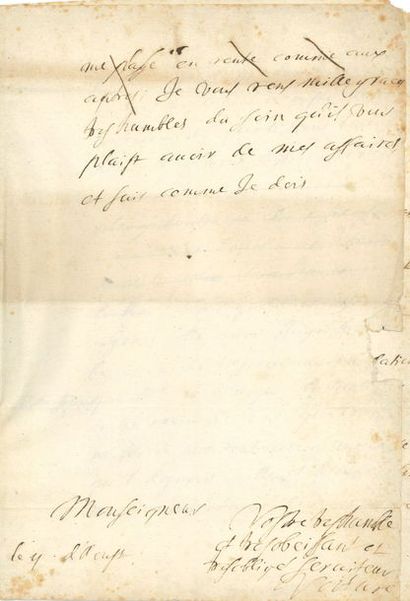 me passe en rente comme aux
autres. Je vous rens mille graces
tres humbles du soin qu'il vous
plaist avoir de mes affaires
et suis comme Je dois
Monseigneur
Vostre tres humble
et tres obeissant et
tres oblige serviteur
Voiture
le y. d'Aoust